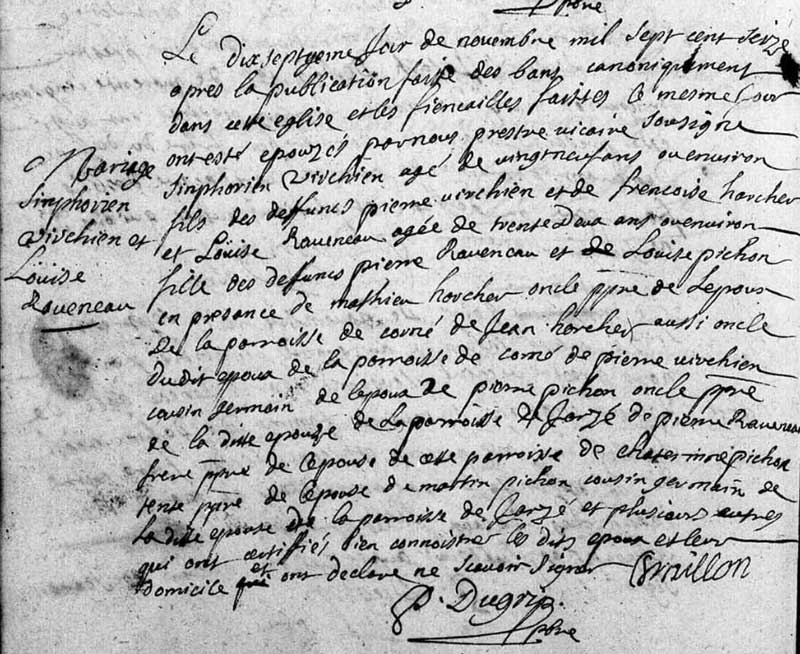 pbre
Le dixseptyeme Jour de novembre mil sept cent seize
apres la publication faite des bans canoniquement
dans cette eglise et les fiencailles faittes le mesme Jour
ont esté epouzés par nous prestre vicaire Sousigné
Mariage
Sinphorien
Virchien et
Loüise
Raveneau
Sinphorien Virchien agé de vingt neuf ans ou environ
fils des deffuncs pierre virchien et de francoise horcher
et Loüise Raveneau agée de trente deux ans ou environ
fille des deffuncs pierre Raveneau et de Louise pichon
en presance de mathieu horcher oncle ppre de Lepoux
de la parroisse de corné de Jean horcher aussi oncle
du dit epoux de la parroisse de corné de pierre virchien
cousin germain de lepoux de pierre pichon oncle ppre
de la ditte epouze de La parroisse de Jarzé de pierre Raveneau
frere ppre de Lepouse de cette parroisse de chaterinne pichon
tente ppre de Lepouse de martin pichon cousin germain de
la ditte epouse de la parroisse de Jarzé et plusieurs autres
qui ont certiffiés bien connoistre les dits epoux et leur
domicile et ont declare ne scavoir Signer Grüillon
P. Dugrip.
pbre